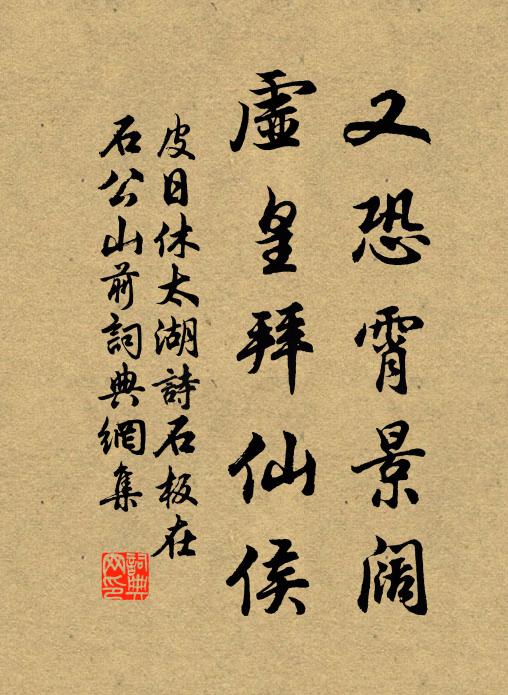 又恐霄景阔
虚皇拜仙侯
皮日休太湖詩石板在
石公山前詞典網集
詞典网印